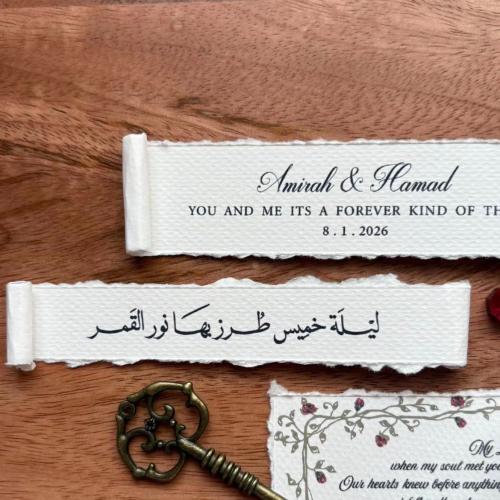 Amirah & Hamad
YOU AND ME ITS A FOREVER KIND OF
8 . 1 . 2026
ليْلَة خميس طرز بها نور القمر
My
when my soul met
Our hearts knew before